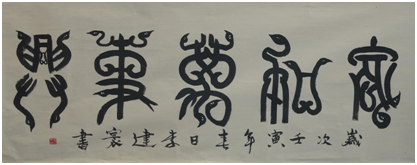 家和萬事興
歲次壬寅年春日李建寰書